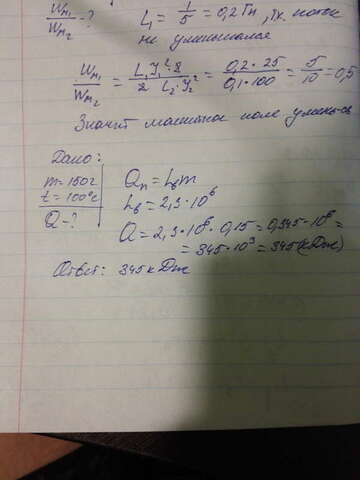 Wм₁/Wм₂ - ? L₁ = 1/5 = 0,2 Гн, т.к. поток
не уменьшался
Wм₁/Wм₂ = L₁ J₁² 2 / 2 L₂ J₂² = 0,2 · 25 / 0,1 · 100 = 5/10 = 0,5
Значит магнитное поле уменьш-сь
Дано:
m = 150г Qп = Lвm
t = 100°C Lв = 2,3 · 10⁶
Q - ? Q = 2,3 · 10⁶ · 0,15 = 0,345 · 10⁶ =
= 345 · 10³ = 345 (кДж)
Ответ: 345 кДж